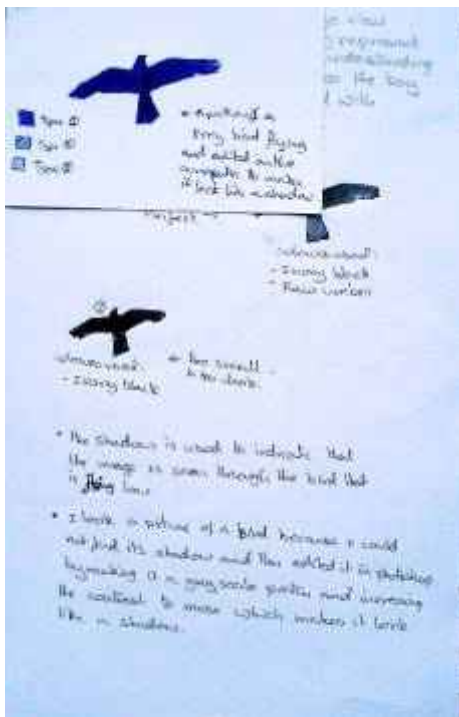 the boy
Tone ①
Tone ②
Tone ③
bird flying
and edited on the
computer to make
it look like a shadow
Perfect →
colours used:
- Ivory black
- Raw umber
①
colours used:
- Ivory black
* too small
& too dark.
• The shadow is used to indicate that
the image is seen through the bird that
is flying
• I took a picture of a bird because I could
not find its shadow and then edited it in photoshop
by making it a grey scale and increasing
the contrast to make which makes it look
like a shadow.